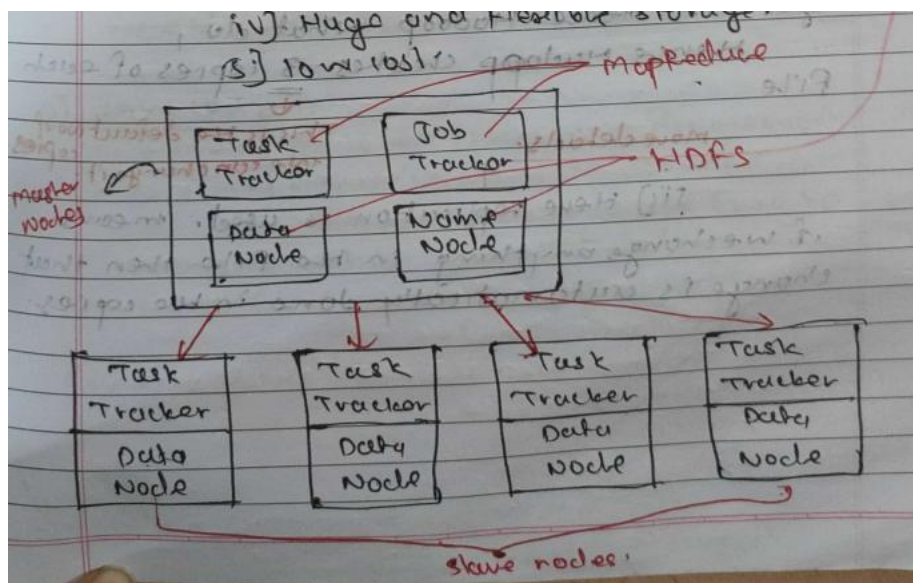 iv) Huge and flexible storage.
5) low cost
MapReduce
Task
Tracker
Job
Tracker
HDFS
Master
Nodes
Data
Node
Name
Node
Task
Tracker
Data
Node
Task
Tracker
Data
Node
Task
Tracker
Data
Node
Task
Tracker
Data
Node
slave nodes.